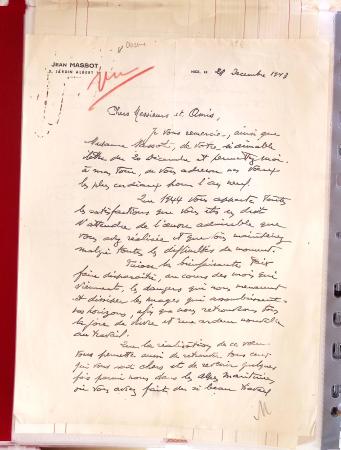 JEAN MASSOT
2, JARDIN ALBERT 1er
NICE, LE 28 Decembre 1943
Chers Messieurs et Amis,
Je vous remercie, ainsi que
Madame Massot, de votre si aimable
lettre du 20 Décembre et permettez moi
à mon tour, de vous adresser nos vœux
les plus cordiaux pour l'an neuf.
Que 1944 vous apporte toutes
les satisfactions que vous êtes en droit
d'attendre de l'œuvre admirable que
vous avez réalisée et que vous maintenez
malgré toutes les difficultés du moment.
Puisse la bienfaisante Paix
faire disparaître, au cours des mois qui
viennent, les dangers qui nous menacent
et dissiper les nuages qui assombrissent
nos horizons, afin que nous retrouvions tous
la joie de vivre et une ardeur nouvelle
au travail.
Que la réalisation de ce vœu
vous permette aussi de retrouver tous ceux
qui vous sont chers et de revenir quelques
fois parmi nous dans les Alpes Maritimes
où vous aviez fait du si beau travail